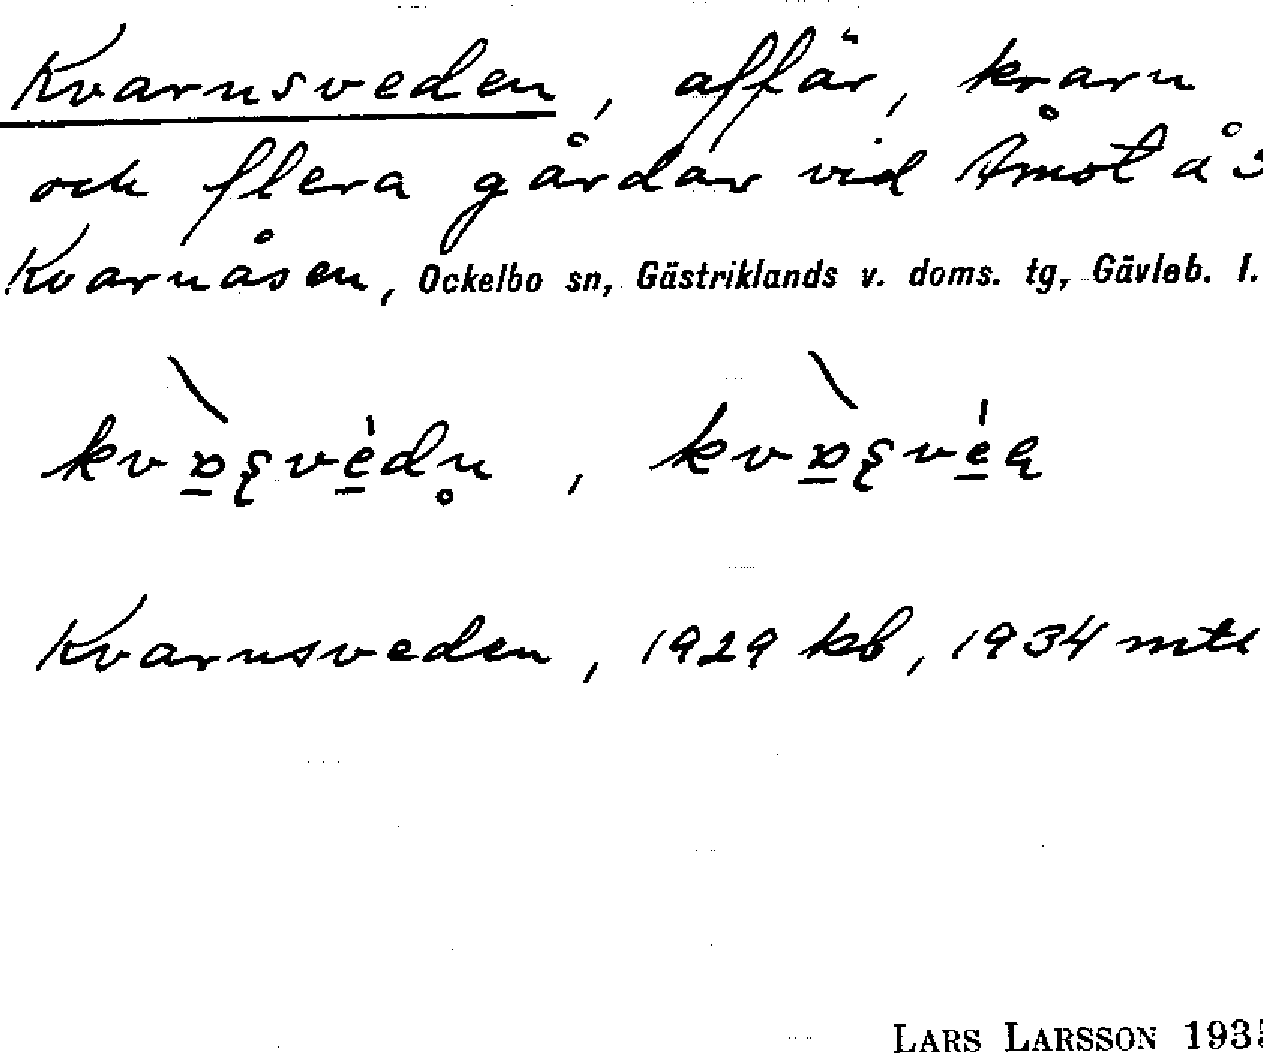 Kvarnsveden, affär, kvarn
och flera gårdar vid Åmot å
Kvarnåsen, Ockelbo sn, Gästriklands v. doms. tg, Gävleb. l.
Kvarnsveden, 1929 kb, 1934 mtl
LARS LARSSON 1935